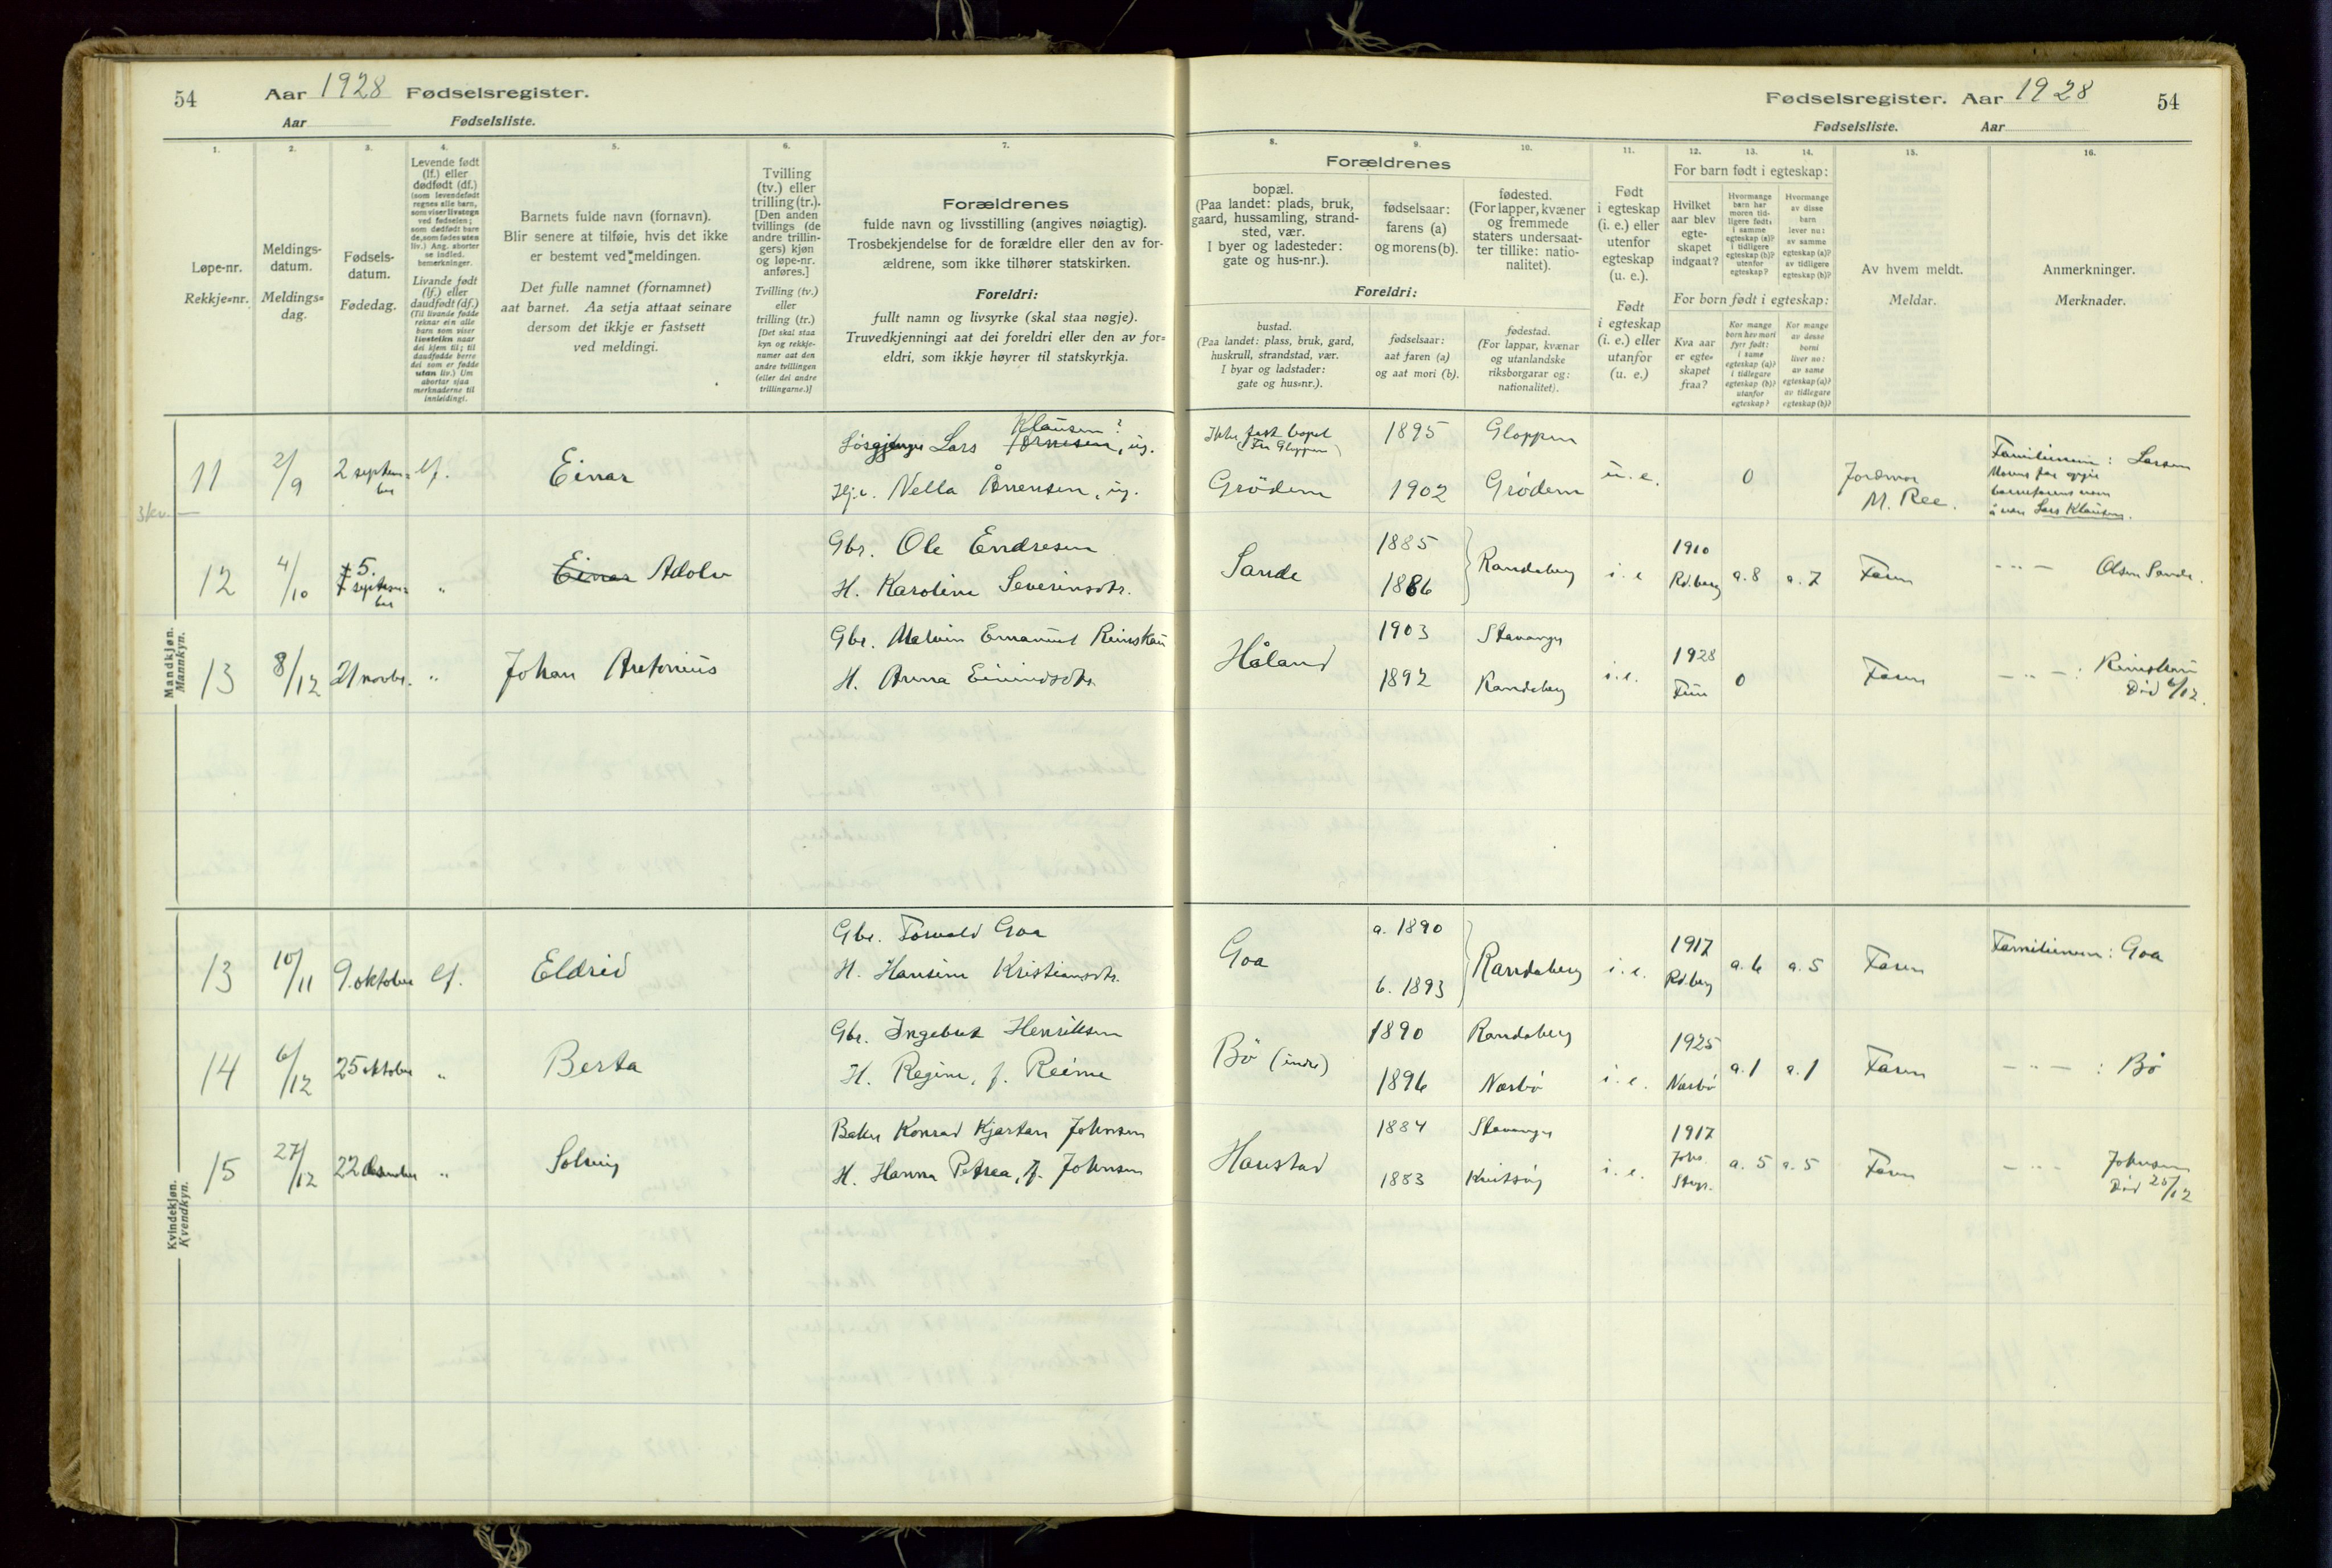 54
Aar 1928 Fødselsregister.
Aar Fødselsliste.
Fødselsregister. Aar 1928
54
Fødselsliste. Aar
1.
2.
3.
4.
5.
6.
7.
8.
9.
10.
11.
12.
13.
14.
15.
16.
Løpe-nr.
Rekkje=nr.
Meldings-
datum.
Meldings=
dag.
Fødsels-
datum.
Fødedag.
Levende født
(lf.) eller
dødfødt (df.)
(som levendefødt
regnes alle barn,
som viser livstegn
ved fødselen;
som dødfødt bare
de, som fødes uten
liv.) Ang. aborter
se indled.
bemerkninger.
Livande født
(lf.) eller
daudfødt (df.)
(Til livande fødde
reknar ein alle
born som viser
livsteikn naar
dei kjem til; til
daudfødde berre
dei som er fødde
utan liv.) Um
abortar sjaa
merknaderne til
innleidingi.
Barnets fulde navn (fornavn).
Blir senere at tilføie, hvis det ikke
er bestemt ved meldingen.
Det fulle namnet (fornamnet)
aat barnet. Aa setja attaat seinare
dersom det ikkje er fastsett
ved meldingi.
Tvilling
(tv.) eller
trilling (tr.).
[Den anden
tvillings (de
andre trillin-
gers) kjøn
og løpe-nr.
anføres.]
Tvilling (tv.)
eller
trilling (tr.)
[Det skal staa
kyn og rekkje-
numer aat den
andre tvillingen
(eller dei andre
trillingarne.)]
Forældrenes
fulde navn og livsstilling (angives nøiagtig).
Trosbekjendelse for de forældre eller den av for-
ældrene, som ikke tilhører statskirken.
Foreldri:
fullt namn og livsyrke (skal staa nøgje).
Truvedkjenningi aat dei foreldri eller den av for=
eldri, som ikkje høyrer til statskyrkja.
Forældrenes
bopæl.
(Paa landet: plads, bruk,
gaard, hussamling, strand-
sted, vær.
I byer og ladesteder:
gate og hus-nr.).
fødselsaar:
farens (a)
og morens (b).
fødested.
(For lapper, kvæner
og fremmede
staters undersaat-
ter tillike: natio-
nalitet).
Foreldri:
bustad.
(Paa landet: plass, bruk, gard,
huskrull, strandstad, vær.
I byar og ladstader:
gate og hus=nr.).
fødselsaar:
aat faren (a)
og aat mori (b).
fødestad.
(For lappar, kvænar
og utanlandske
riksborgarar og:
nationalitet).
Født
i egteskap
(i. e.) eller
utenfor
egteskap
(u. e.).
Født
i egteskap
(i. e.) eller
utanfor
(u. e.)
For barn født i egteskap:
Hvilket
aar blev
egte-
skapet
indgaat?
Hvormange
barn har
moren tid-
ligere født:
i samme
egteskap (a)?
i tidligere
egteskap (b)?
utenfor
egteskap?
Hvormange
av disse
barn
lever nu:
av samme
egteskap (a)?
av tidligere
egteskap (b)?
For born født i egteskap:
Kva aar
er egte=
skapet
fraa?
Kor mange
born hev mori
fyrr født:
i same
egteskap (a)?
i tidlegare
egteskap (b)?
utanfor
egteskap?
Kor mange
av desse
borni
liver no:
av same
egteskap (a)?
av tidlegare
egteskap (b)?
Av hvem meldt.
Meldar.
Anmerkninger.
Merknader.
Mandkjøn.
Mannkyn.
11 2/9 2 septem=ber lf. Einar
Løsgjenger Lars Tønnesen, ug.
Klausen?
Hj.v. Nella Årrensen, ug.
Ikke fast bopel
(Fra Gloppen)
Grödem
1895 Gloppen
1902 Grödem
u. e. 0
Jordmor
M. Ree.
Familienavn: Larsen
Morens far opgir
barnefarens navn
å være Lars Klausen.
3 kv.
12 4/10 5. septem=ber " Einar Adolv
Gbr. Ole Endresen
H. Karoline Severinsdtr.
Sande
1885
1886
Randaberg i. e
1910
Rd.berg
a. 8 a. 7 Faren - " - Olsen Sande.
13 8/12 21 novbr. " Johan Antonius
Gbr. Malvin Emanuel Reinskau
H. Anna Eivindsdtr.
Håland
1903 Stavanger
1892 Randaberg
i. e.
1928
0 Faren - " - : Reinskau
Død 6/12.
Kvindekjøn.
Kvendkyn.
13 10/11 9. oktober lf. Eldrid
Gbr. Torvald Goa
H. Hansine Kristiansdtr.
Goa
a. 1890
b. 1893
Randaberg i. e.
1917
Rd.berg
a. 6 a. 5 Faren Familienavn: Goa
14 6/12 25 oktober " Berta
Gbr. Ingebret Henriksen
H. Regine, f. Reime
Bö (indre)
1890 Randaberg
1896 Nærbö
i. e.
1925
Nærbö
a. 1 a. 1 Faren - " - : Bö
15 27/12 22 desember " Solveig
Baker Konrad Kjartan Johnsen
H. Hanna Petrea, f. Johnsen
Harestad
1884 Stavanger
1883 Kvitsöy
i. e.
1917
Joh.
Stvgr.
a. 5 a. 5 Faren - " - Johnsen
Død 25/12